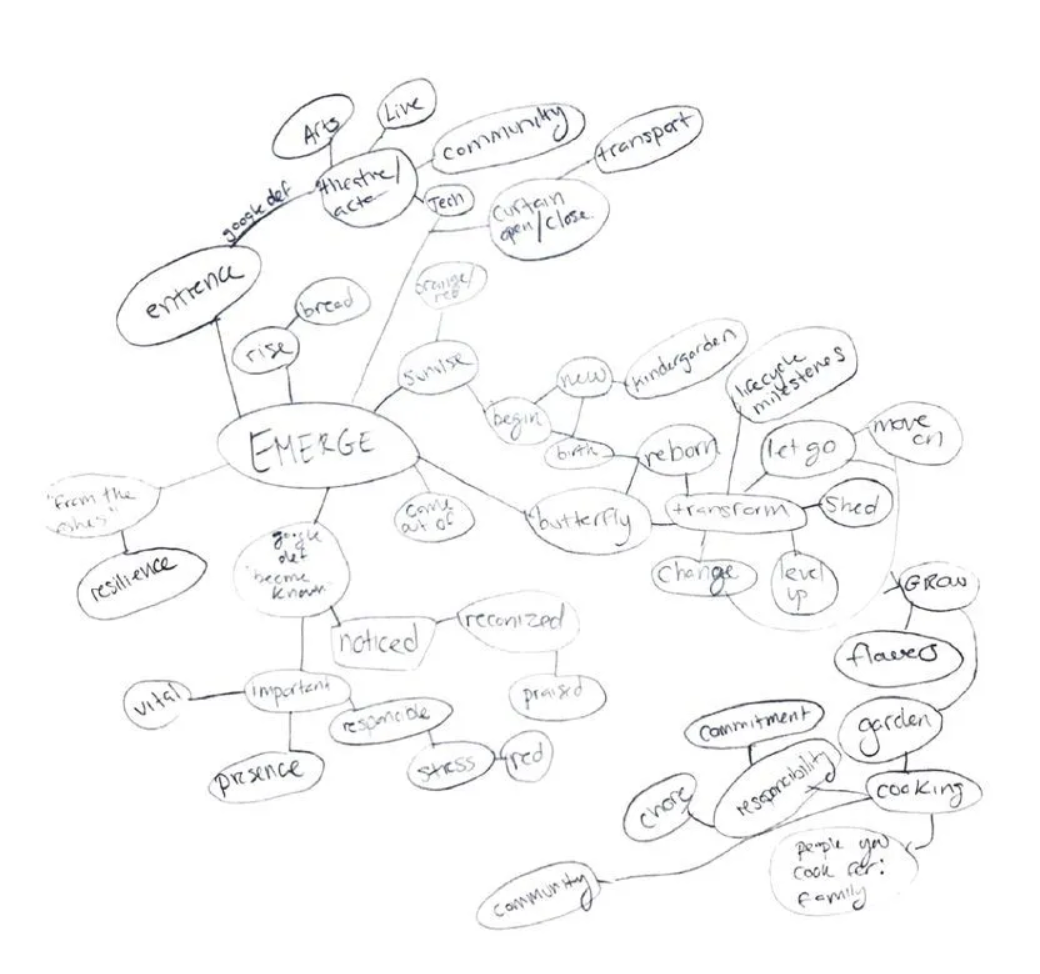 Arts
Live
community
transport
google def
theatre/
acto
Tech
curtain
open/close
entrence
orange/
red
bread
rise
sunrise
new
kindergarden
lifecycle
milestones
begin
birth
reborn
let go
move
on
EMERGE
"From the
ashes"
came
out of
butterfly
transform
shed
resilience
google
def
"become
known"
change
level
up
GROW
noticed
reconized
flowers
vital
important
praised
responcible
commitment
garden
presence
stress
red
responcibility
cooking
chore
people you
cook for:
family
community